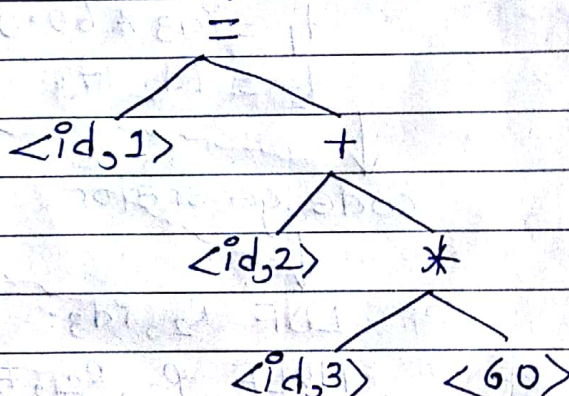 =
<id,1> +
<id,2> *
<id,3> <60>